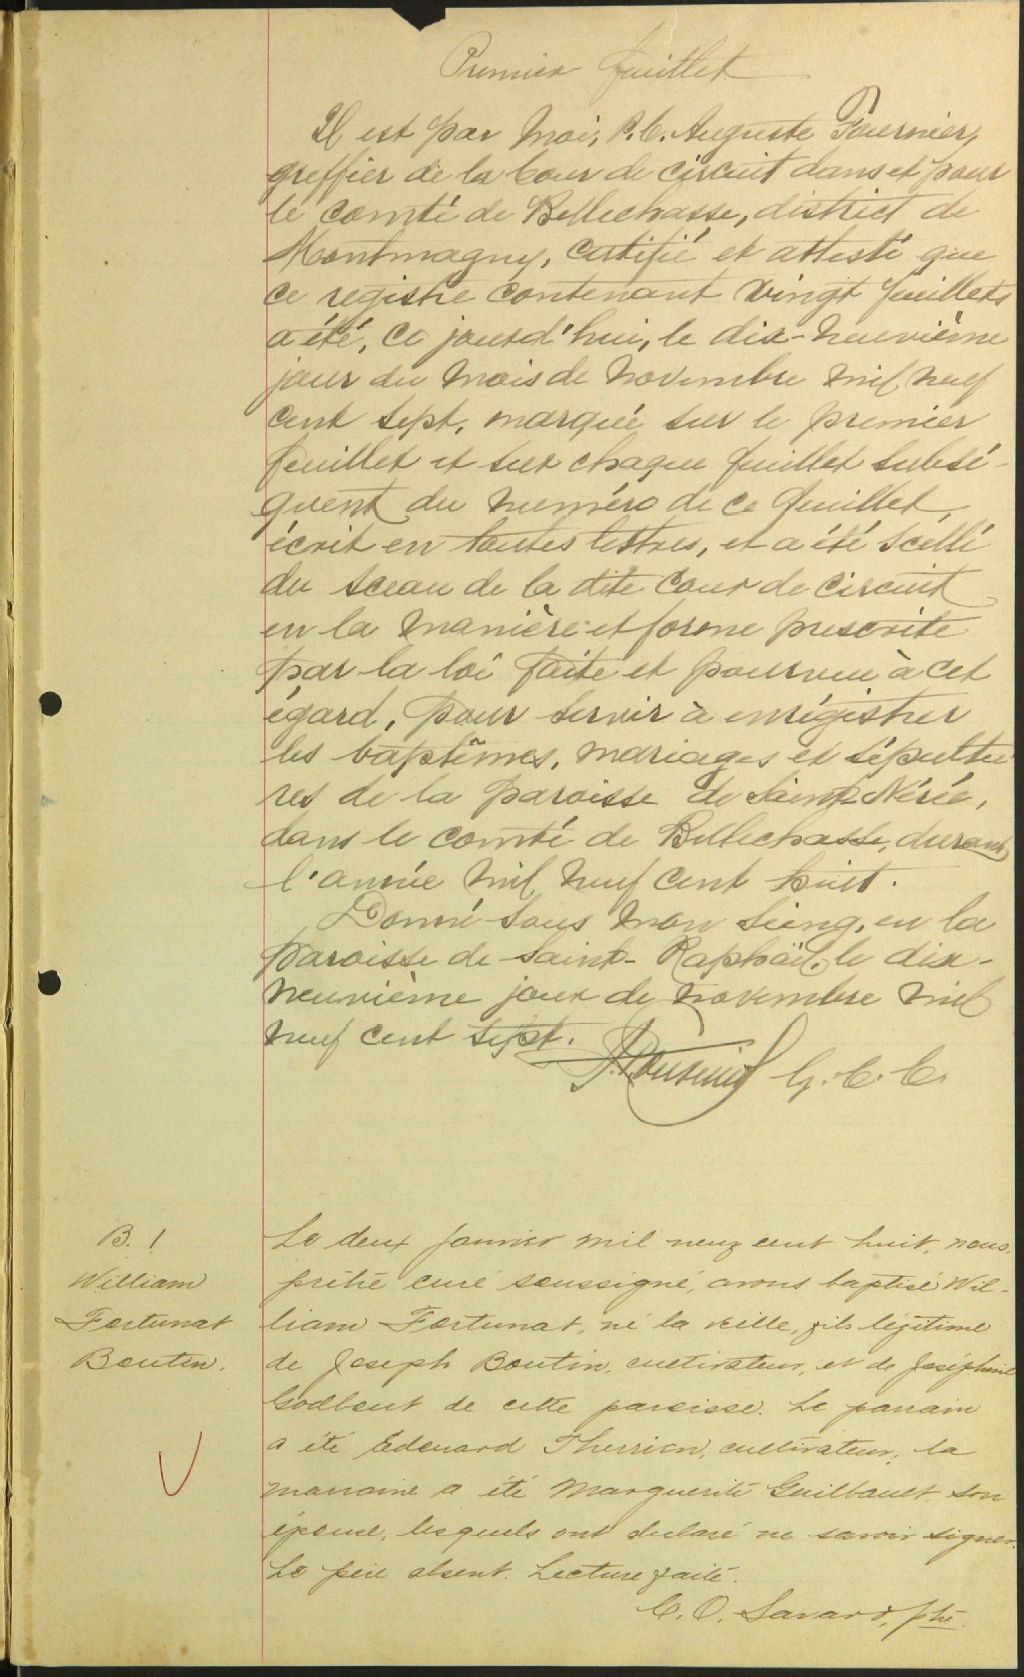 Premier feuillet
Il est par moi, P. C. Auguste Fournier,
greffier de la Cour de circuit dans et pour
le comté de Bellechasse, district de
Montmagny, certifié et attesté que
ce registre contenant vingt feuillets
a été, ce jourd'hui, le dix-neuvième
jour du mois de novembre mil neuf
cent sept, marqué sur le premier
feuillet et sur chaque feuillet subsé-
quent du numéro de ce feuillet,
écrit en toutes lettres, et a été scellé
du sceau de la dite Cour de Circuit
en la manière et forme prescrite
par la loi faite et pourvue à cet
égard, pour servir à enrégistrer
les baptêmes, mariages et sépultu
res de la paroisse de Saint Nérée,
dans le comté de Bellechasse, durant
l'année mil neuf cent huit.
Donné sous mon seing, en la
paroisse de Saint-Raphaël, le dix-
neuvième jour de novembre mil
neuf cent sept.
G. C. C.
B. 1
William
Fortunat
Boutin.
Le deux janvier mil neuf cent huit, nous,
prêtre curé soussigné, avons baptisé Wil-
liam Fortunat, né la veille, fils légitime
de Joseph Boutin, cultivateur, et de Joséphine
Godbout de cette paroisse. Le parrain
a été Edouard Therrien, cultivateur, la
marraine a été Marguerite Guilbault son
épouse, lesquels ont déclaré ne savoir signer.
Le père absent. Lecture faite.
C. O. Savard, ptre